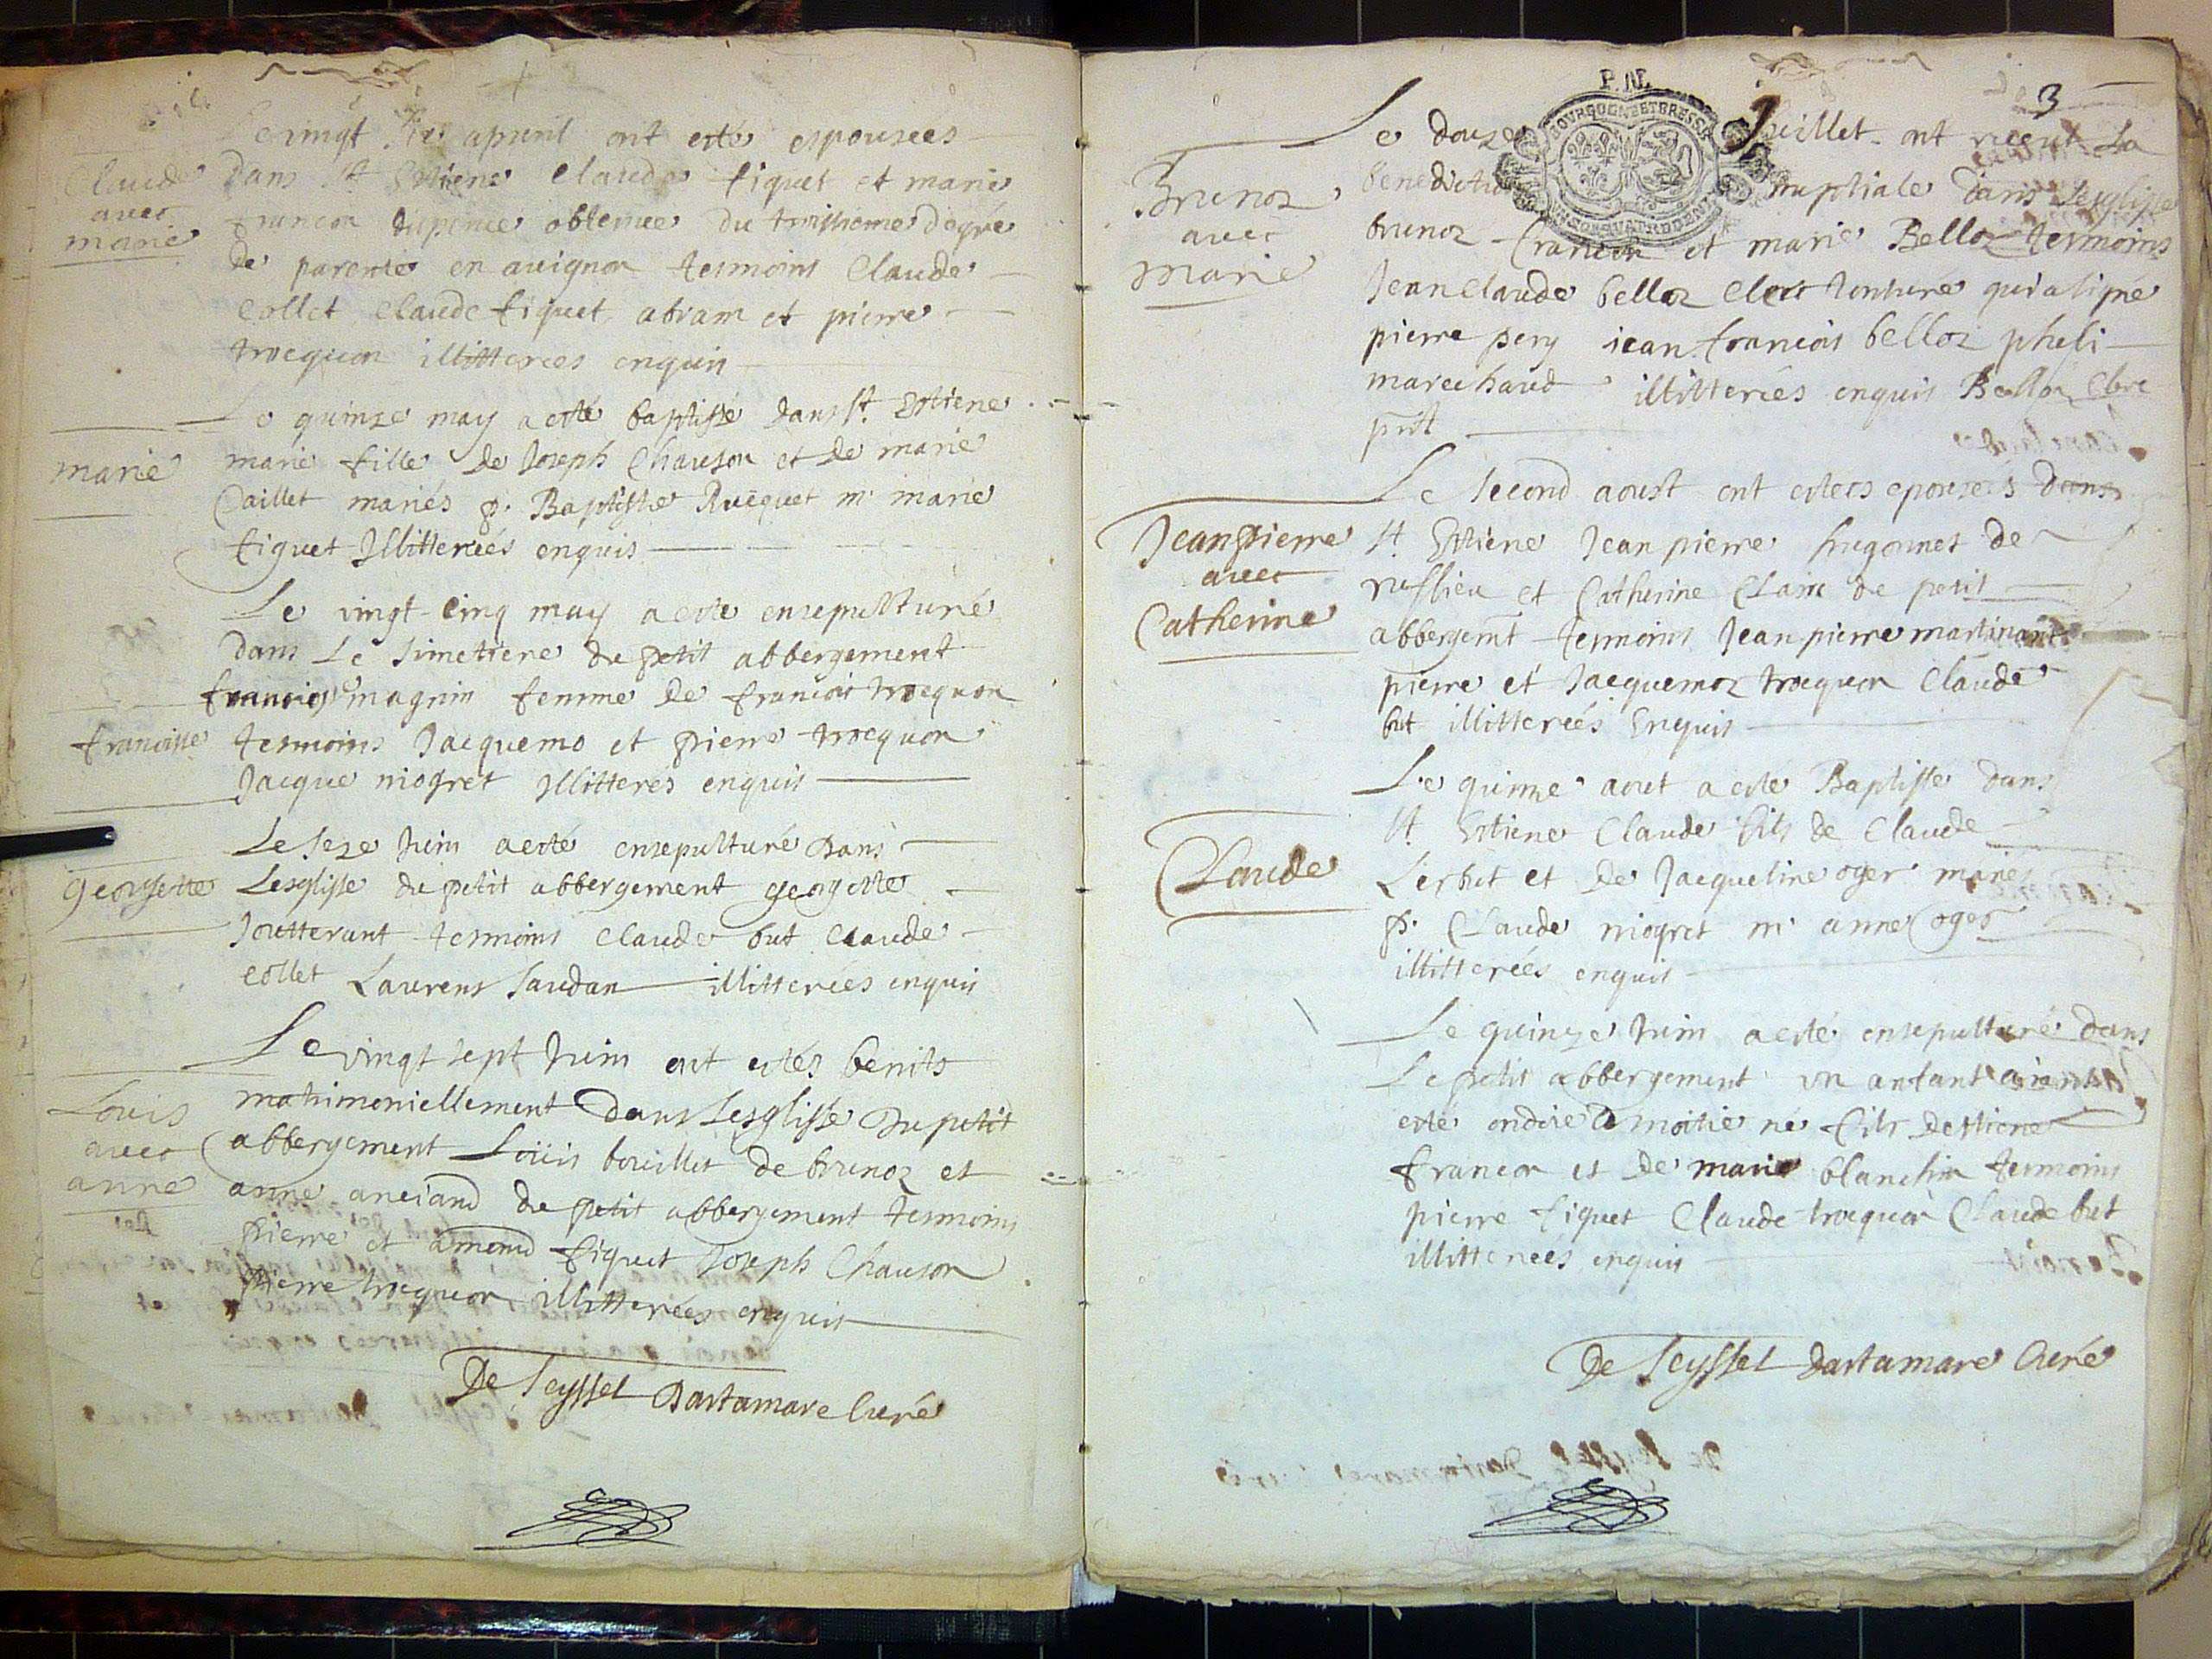 Le vingt apvril ont esté espousées
Claude
avec
marie
dans St Estiene Claude fiquet et marie
francon dispence obtenue du troissieme degré
de parenté en avignon tesmoins Claude
Collet Claude fiquet abram et pierre
trocquon illitterees enquis
marie
Le quinze may a esté baptissé dans St Estiene
marie fille de Joseph Chauson et de marie
Caillet mariés p. Baptiste Rucquet m. marie
fiquet Jllitterées enquis
Le vingt-cinq may a este ensepulturé
dans Le simetiere de petit abbergement
magnin femme de francois trocquon
francoisse
tesmoins Jacquemo et pierre trocquon
Jacque niogret Jllitterés enquis
Georgette
Le seze Juin a esté ensepulturé dans
Lesglisse de petit abbergement georgette
Joutterant tesmoins Claude but Claude
collet Laurens Saudan illitterées enquis
Louis
avec
anne
Le vingt sept Juin ont estés benits
matrimoniellement dans Lesglisse du petit
abbergement Loüis bouillet de brenoz et
anne anciand de petit abbergement tesmoins
pierre et amend fiquet Joseph Chauson
pierre trocquon illitterées enquis
De Seyssel Dartamare Curé
3
P. M.
BOURGOGNE ET BRESSE
Brenoz
avec
Marie
Le douze Juillet ont receut La
benediction nuptiale dans Lesglisse
brenoz francon et marie Belloz tesmoins
Jean Claude belloz Clerc tonturé qui a signé
pierre pery jean francois belloz pheli
marechaud illitterées enquis Belloz Clerc
pnt
Jean pierre
avec
Catherine
Le second aoust ont estees epousees dans
St Estiene Jean pierre hugonnet de
ruffieu et Catherine Claire de petit
abbergemt tesmoins Jean pierre martinant
pierre et Jacquemoz trocquon Claude
but illitterées Enquis
Claude
Le quinze aout a esté Baptisse dans
St Estiene Claude fils de Claude
Lerbet et de Jacqueline oger mariés
p. Claude niogret m. anne oger
illitterées enquis
Le quinze Juin a esté ensepulturé dans
Le petit abbergement un anfant aiant
esté ondoié a moitie né fils destiene
francon et de marie blanchin tesmoins
pierre fiquet Claude trocquon Claude but
illitterées enquis
De Seyssel Dartamare Curé